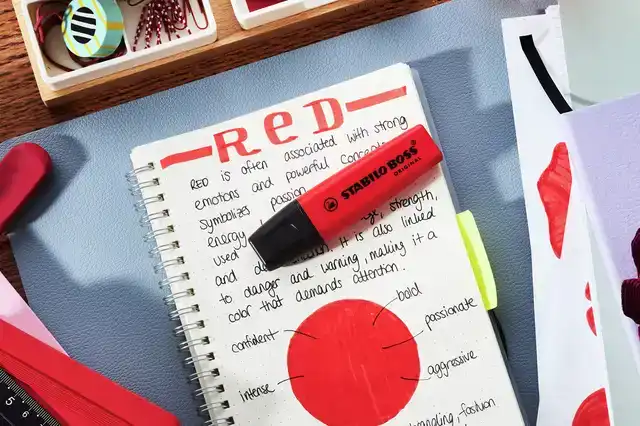 RED
RED is often associated with strong
emotions and powerful
symbolizes passion
energy strength,
used
and It is also linked
to danger and warning, making it a
color that demands attention.
STABILO BOSS
ORIGINAL
bold
confident
passionate
intense
aggressive
branding, fashion
5
6